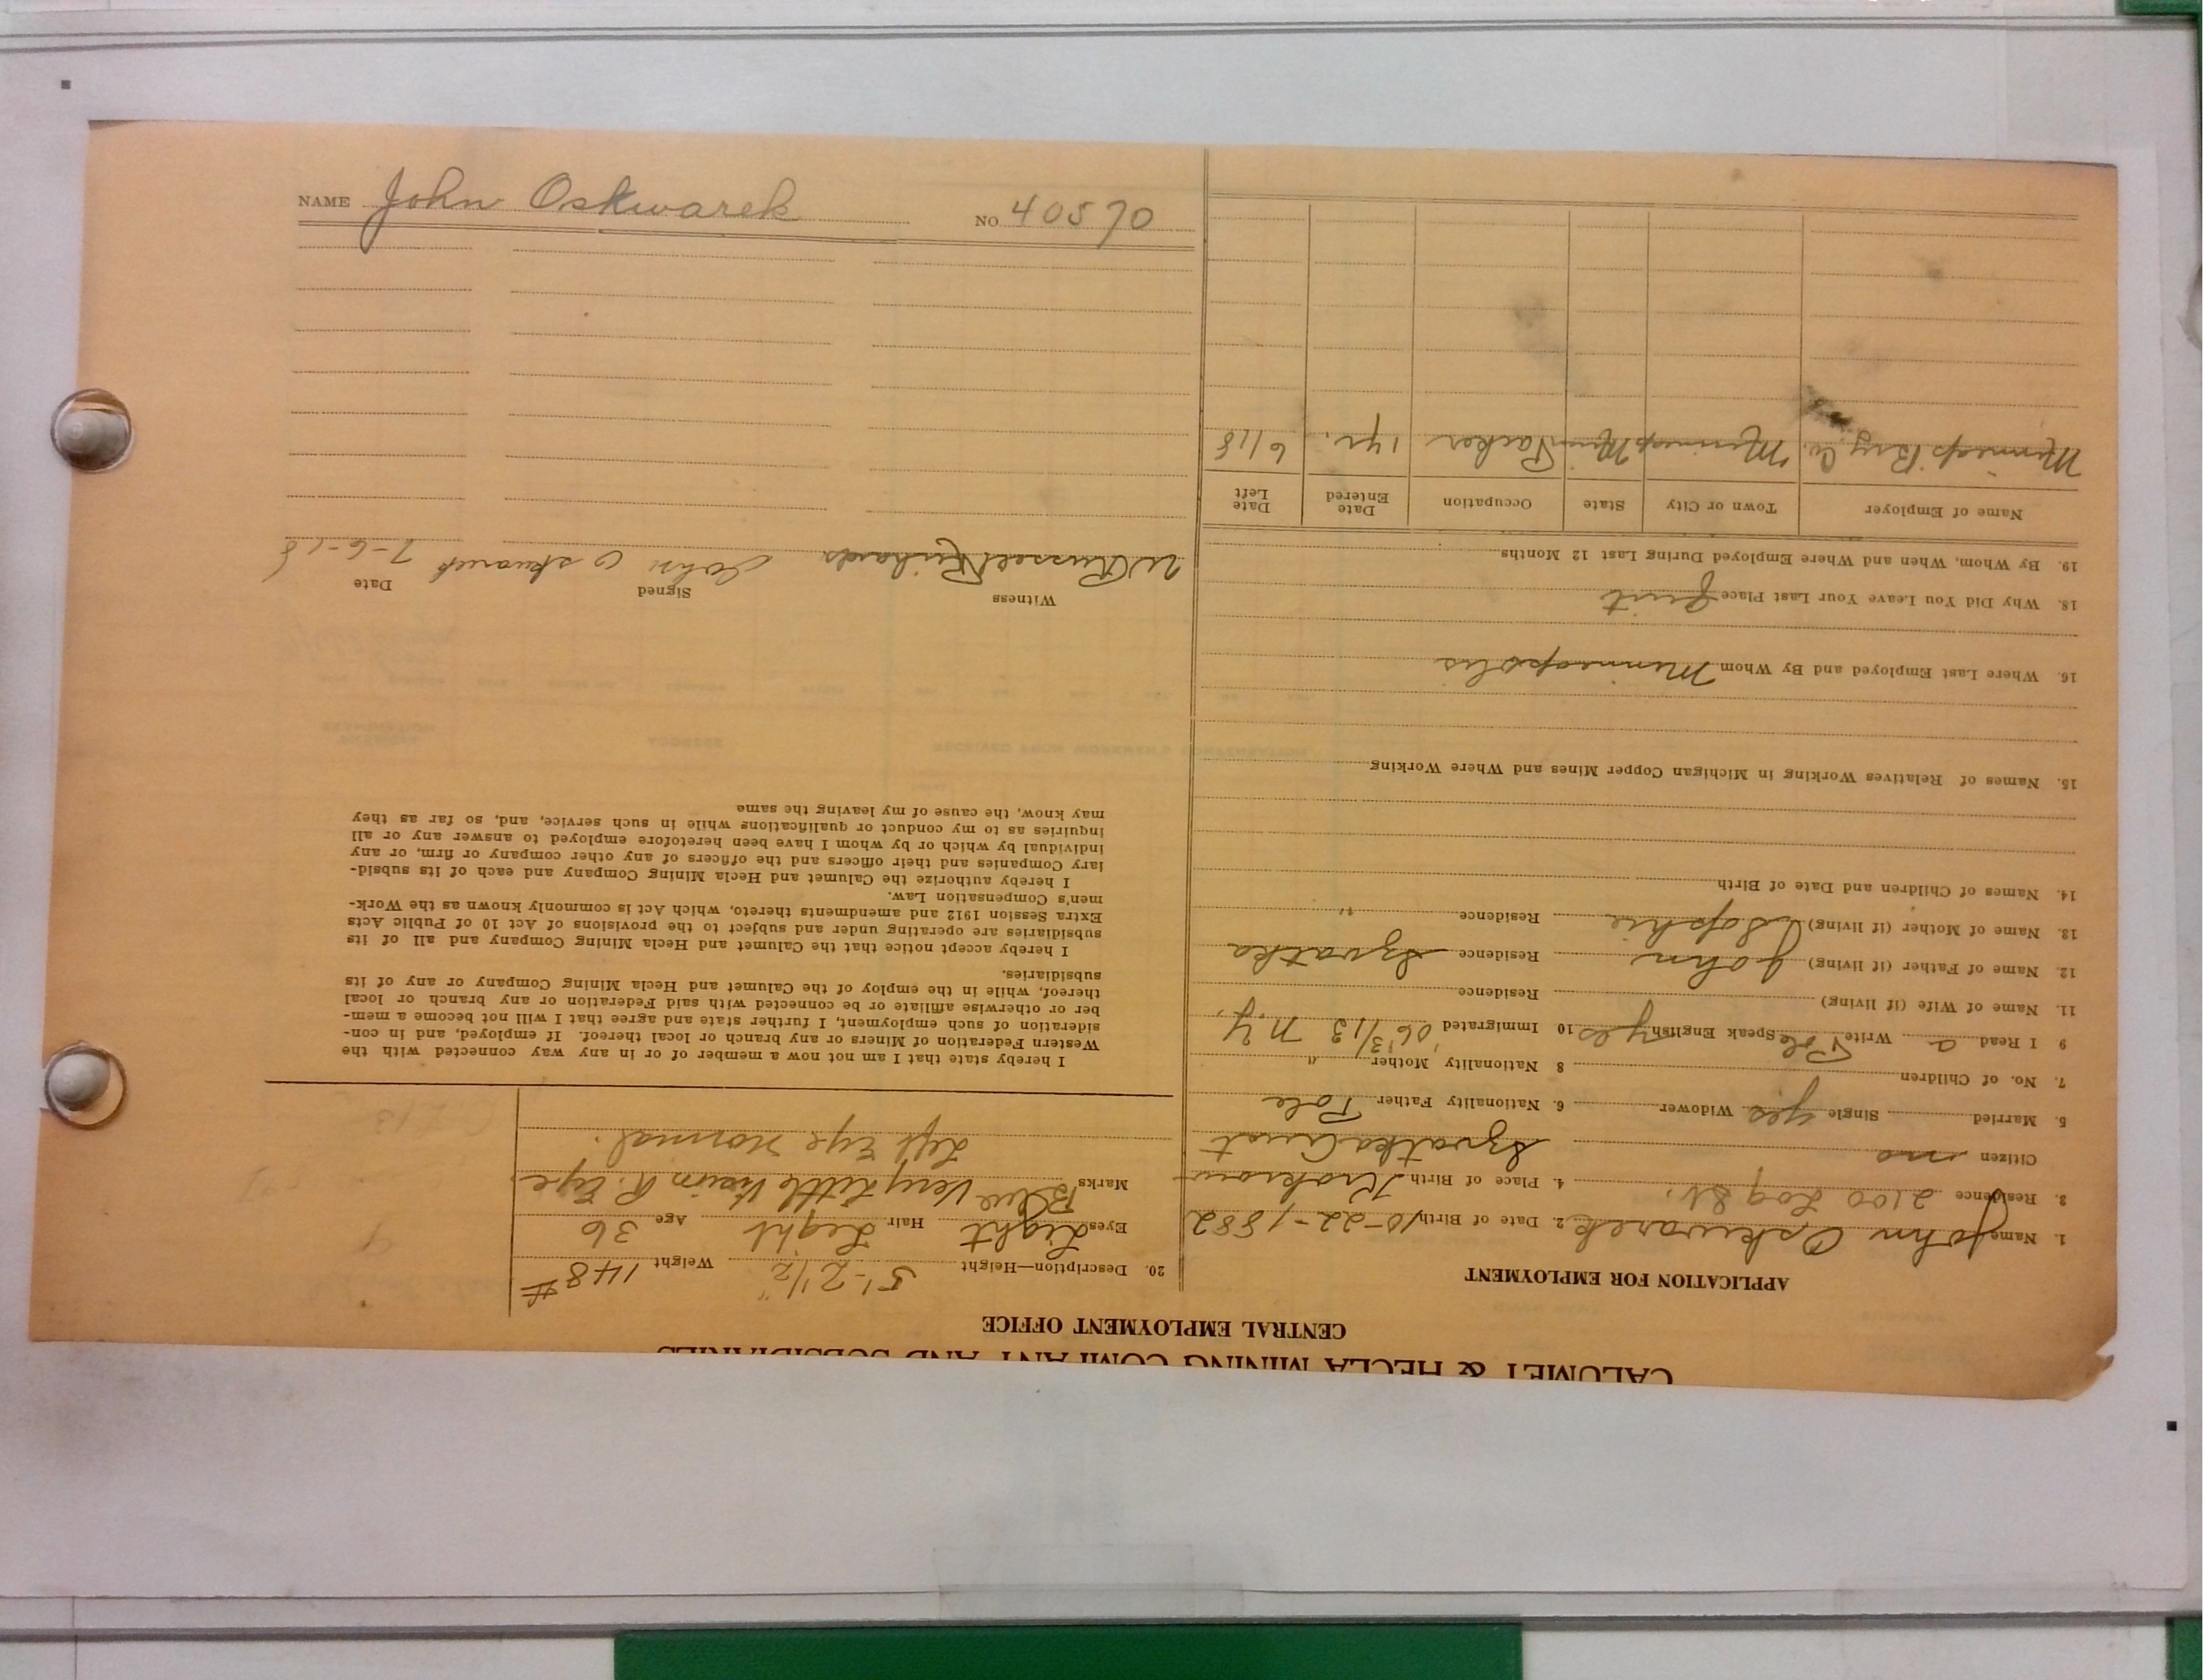 NAME John Oskwarek NO. 40570
CALUMET & HECLA MINING COMPANY AND SUBSIDIARIES
CENTRAL EMPLOYMENT OFFICE
APPLICATION FOR EMPLOYMENT
1. Name John Oskwarek 2. Date of Birth 10-22-1882
3. Residence 2100 Log St. 4. Place of Birth Krakow
Citizen no
5. Married Single yes Widower 6. Nationality Father Pole
7. No. of Children 8 Nationality Mother "
9 I Read a Write Pole Speak English yes 10 Immigrated '06 3/13 N.Y.
11. Name of Wife (if living) Residence
12. Name of Father (if living) John Residence Szvatka
13. Name of Mother (if living) Sophie Residence "
14. Names of Children and Date of Birth
15. Names of Relatives Working in Michigan Copper Mines and Where Working
16. Where Last Employed and By Whom Minneapolis
18. Why Did You Leave Your Last Place Quit
19. By Whom, When and Where Employed During Last 12 Months
Name of Employer Town or City State Occupation Date Entered Date Left
Minneap Brg. Co. Minneap Minn Packer 1 yr. 6/18
20. Description—Height 5'-2 1/2" Weight 148#
Eyes Light Blue Hair Light Age 36
Marks Very Little Vision R. Eye
Left Eye normal.
I hereby state that I am not now a member of or in any way connected with the
Western Federation of Miners or any branch or local thereof. If employed, and in con-
sideration of such employment, I further state and agree that I will not become a mem-
ber or otherwise affiliate or be connected with said Federation or any branch or local
thereof, while in the employ of the Calumet and Hecla Mining Company or any of its
subsidiaries.
I hereby accept notice that the Calumet and Hecla Mining Company and all of its
subsidiaries are operating under and subject to the provisions of Act 10 of Public Acts
Extra Session 1912 and amendments thereto, which Act is commonly known as the Work-
men's Compensation Law.
I hereby authorize the Calumet and Hecla Mining Company and each of its subsid-
iary Companies and their officers and the officers of any other company or firm, or any
individual by which or by whom I have been heretofore employed to answer any or all
inquiries as to my conduct or qualifications while in such service, and, so far as they
may know, the cause of my leaving the same
Witness Signed Date
W Russell Richards John Oskwarek 7-6-18